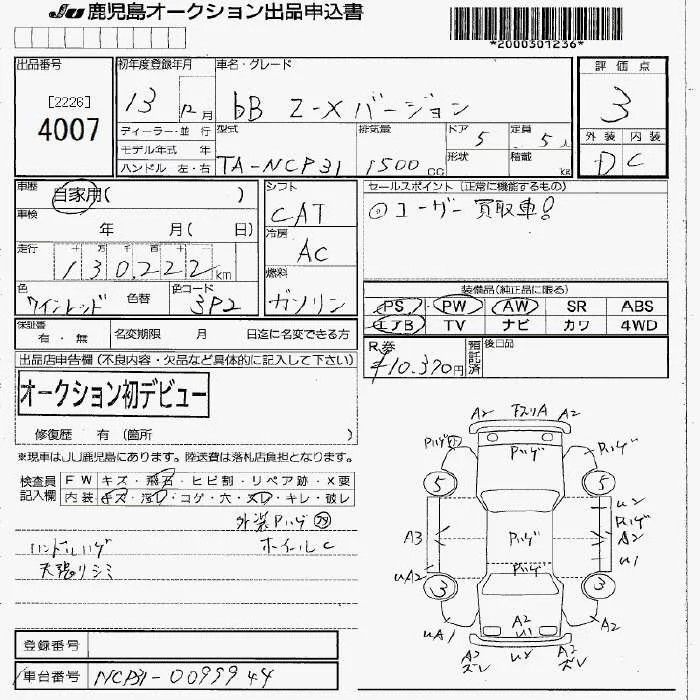 JU 鹿児島オークション出品申込書
*2000301236*
出品番号 初年度登録年月 車名・グレード 評価点
[2226]
4007
13 12月 bB Z-Xバージョン 3
ディーラー・並行 型式 排気量 ドア 5 定員 5人 外装 内装
モデル年式 年 形状 積載 kg
ハンドル 左・右 TA-NCP31 1500cc D C
車歴 自家用( ) シフト セールスポイント(正常に機能するもの)
CAT ◎ユーザー買取車!
車検 年 月( 日) 冷房
AC
走行 十 万 千 百 十
130,222km 燃料
装備品(純正品に限る)
色 ワインレッド 色替 色コード 3P2 ガソリン PS PW AW SR ABS
エアB TV ナビ カワ 4WD
保証書 有・無 名変期限 月 日迄に名変できる方
R券 ¥10,370円 預託済 後日品
出品店申告欄(不良内容・欠品など具体的に記入して下さい)
オークション初デビュー
修復歴 有(箇所 )
※現車はJU鹿児島にあります。陸送費は落札店負担となります。
検査員記入欄 FWキズ・飛石・ヒビ割・リペア跡・X要
内装・キズ・汚レ・コゲ・穴・スレ・キレ・破レ
外装ハゲ
ハンドルハゲ ホイールC
天張リシミ
A2 下スリA A2
ハゲ ハゲ ハゲ
5 5
U2
ハゲ
A3 ハゲ A2
U1
UA2 ハゲ
3 3
UA1 A2 U1 A2
A2 ズレ U2 A2 ズレ
登録番号
車台番号 NCP31-0099944